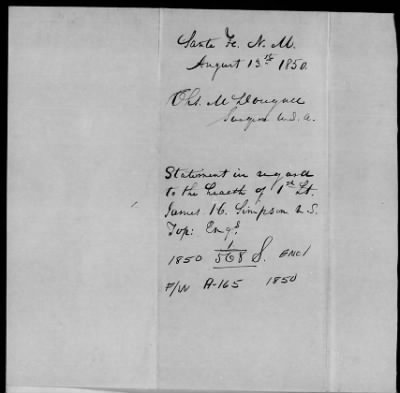 Santa Fe. N. M.
August 13th 1850.
Chs. McDougall
Surgeon U.S.A.
Statement in regard
to the health of 1st Lt.
James H. Simpson U.S.
Top: Engs
1
1850 568 S. ENCl
F/W A-165 1850